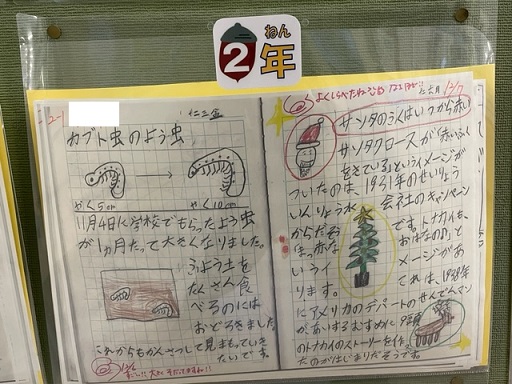 ねん
2年
2-1
カブト虫のよう虫
やく5cm
やく10cm
11月4日に学校でもらったよう虫
が1ヵ月たって大きくなりました。
ふよう土を
たくさん食
べるのには
おどろきました。
これからもかんさつして見まもっていき
たいです。
よくしらべたね
12/7
サンタのふくはいつから赤い
サンタクロースが「赤いふく
をきている」というイメージが
ついたのは、1931年のせいりょう
いんりょう水
会社のキャンペーン
からだそ
うです。トナカイも、
「まっ赤な
おはなの」と
いうイ
メージがあ
ります。
これは、1939年
にアメリカのデパートのせんでんマン
があいするむすめに9頭
のトナカイのストーリーを作っ
たのがはじまりだそうです。